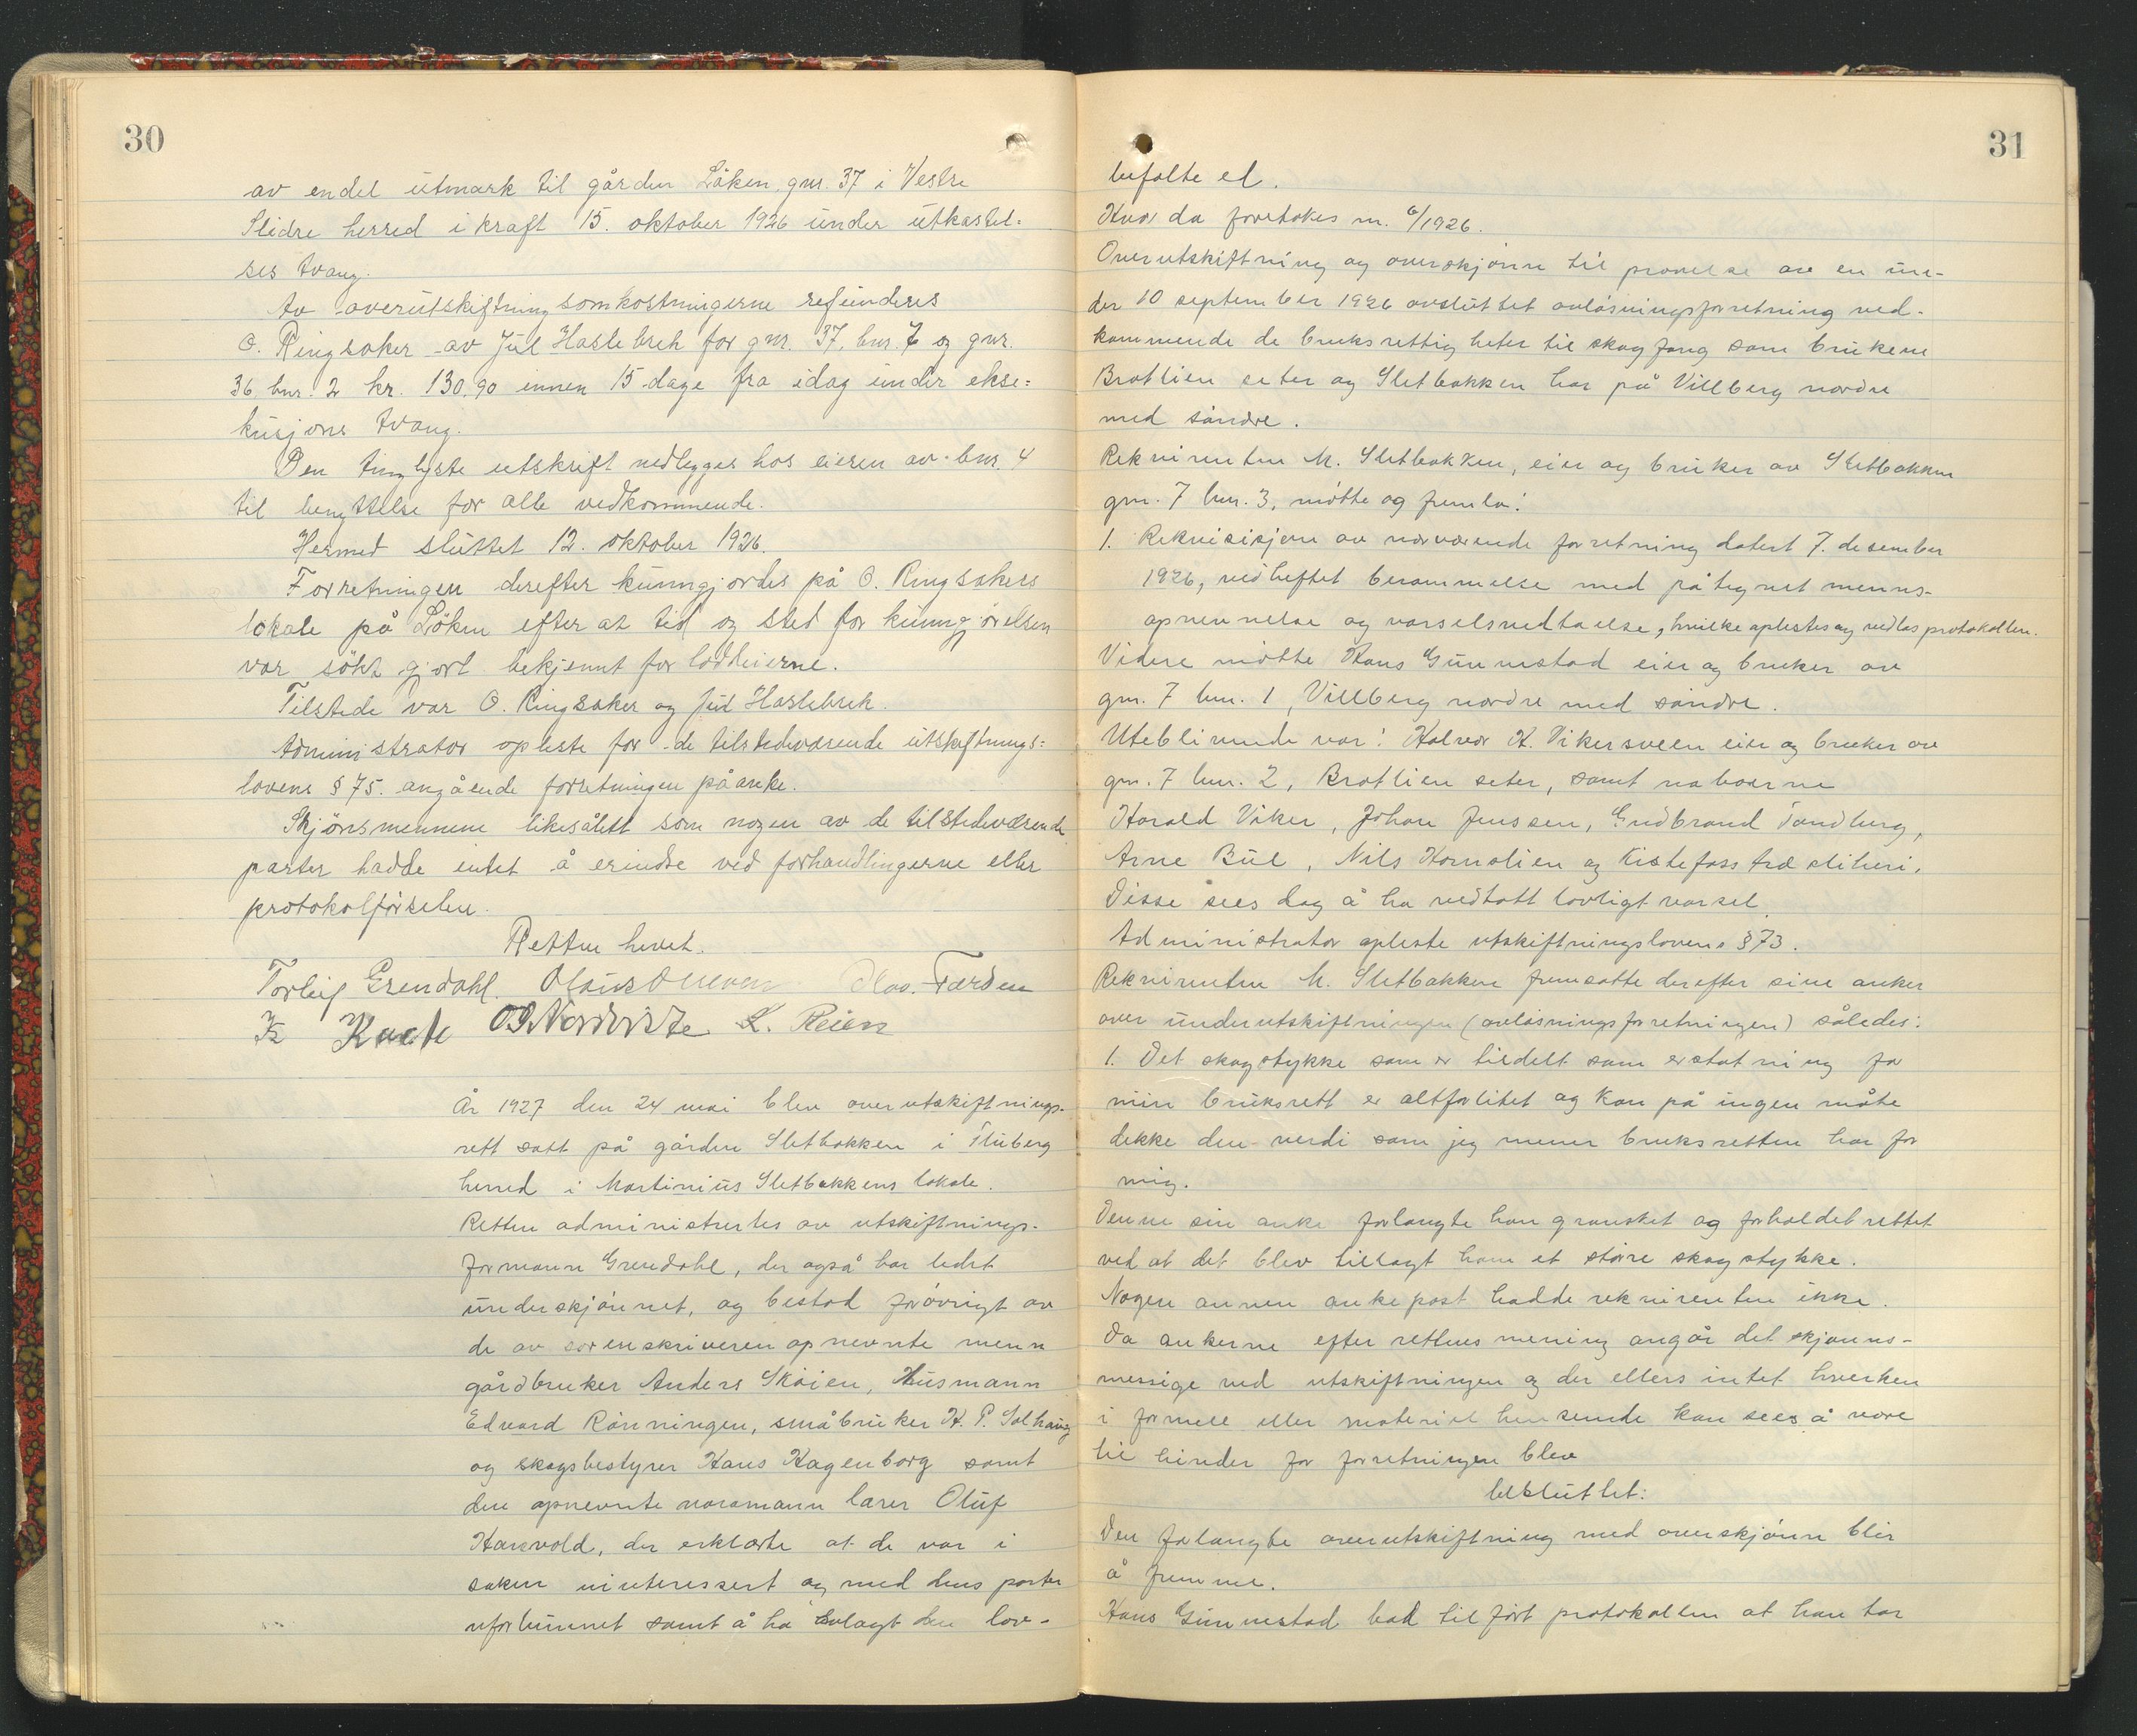 30
av endel utmark til gården Löken, gnr. 37 i Vestre
Slidre herred i kraft 15. oktober 1926 under utkastel=
ses tvang.
Av overutskiftningsomkostningerne refunderes
O. Ringsaker av Jul Haslebrek for gnr. 37, bnr. 7 og gnr.
36 bnr. 2 kr. 130,90 innen 15 dage fra idag under ekse=
kusjons tvang.
Den tinglyste utskrift nedlegges hos eieren av bnr. 4
til benyttelse for alle vedkommende.
Hermed sluttet 12. oktober 1926.
Forretningen derefter kunngjordes på O. Ringsakers
lokale på Löken efter at tid og sted for kunngjörelsen
var sökt gjort bekjennt for loddeierne.
Tilstede var O. Ringsaker og Jul Haslebrek.
Administrator opleste for de tilstedeværende utskiftnings=
lovens § 75. angående forretningen påanke.
Skjönsmennene likesålitt som nogen av de tilstedeværende
parter hadde intet å erindre ved forhandlingerne eller
protokolförselen.
Retten hevet.
Torleif Grendahl. Olaus Färden
K. Reien
År 1927 den 24 mai blev overutskiftnings-
rett satt på gården Sletbakken i Fluberg
herred i Martinius Sletbakkens lokale.
Retten administrertes av utskiftnings-
formann Grendahl, der også har ledet
underskjönnet, og bestod forövrigt av
de av sorenskriveren opnevnte menn
gårdbruker Anders Sköien, Husmann
Edvard Rönningen, småbruker H. P. Solhaug
og skogsbestyrer Hans Hagenborg samt
den opnevnte varamann lærer Oluf
Hanvold, der erklærte at de var i
saken uinteressert og med dens parter
uforbunnet samt å ha avlagt den lov-
31
befalte ed.
Hvor da foretokes nr. 6/1926.
Overutskiftning og overskjönn til prövelse av en un-
der 10 september 1926 avsluttet avlösningsforretning ved-
kommende de bruksrettigheter til skogfang som brukene
Brotlien seter og Sletbakken har på Villberg nordre
med söndre.
Rekvirenten M. Sletbakken, eier og bruker av Sletbakken
gnr. 7 bnr. 3, mötte og fremla:
1. Rekvisisjon av nærværende forretning datert 7. desember
1926, vedheftet berammelse med påtegnet menns-
opnevnelse og varselsvedtaelse, hvilke oplestes og vedlas protokollen.
Videre mötte Hans Gunnestad eier og bruker av
gnr. 7 bnr. 1, Villberg nordre med söndre.
Uteblivende var: Halvor H. Vikersveen eier og bruker av
gnr. 7 bnr. 2, Brotlien seter, samt naboerne
Harald Viker, Johan Jenssen, Gudbrand Tandberg,
Arne Bul, Nils Kornolien og Kistefoss træsliberi.
Disse sees dog å ha vedtatt lovligt varsel.
Administrator opleste utskiftningslovens § 73.
Rekvirenten M. Sletbakken fremsatte derefter sine anker
over underutskiftningen (avlösningsforretningen) således:
1. Det skogstykke som er tildelt som erstatning for
min bruksrett er altforlitet og kan på ingen måte
dekke den verdi som jeg mener bruksretten har for
mig.
Denne sin anke forlangte han gransket og forholdet rettet
ved at det blev tillagt ham et större skogstykke.
Nogen annen ankepost hadde rekvirenten ikke.
Da ankerne efter rettens mening angår det skjönns-
messige ved utskiftningen og der ellers intet hverken
i formell eller materiel henseende kan sees å være
til hinder for forretningen blev
besluttet:
Den forlangte overutskiftning med overskjönn blir
å fremme.
Hans Gunnestad bad tilfört protokollen at han har